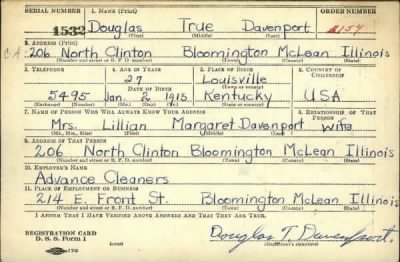 SERIAL NUMBER 1. NAME (Print) ORDER NUMBER
1532 Douglas True Davenport 2154
(First) (Middle) (Last)
2. ADDRESS (Print)
CA 206 North Clinton Bloomington McLean Illinois
(Number and street or R. F. D. number) (Town) (County) (State)
3. TELEPHONE 4. AGE IN YEARS 5. PLACE OF BIRTH 6. COUNTRY OF CITIZENSHIP
27 Louisville
DATE OF BIRTH (Town or county)
5495 Jan. 2 1913 Kentucky USA
(Exchange) (Number) (Mo.) (Day) (Yr.) (State or country)
7. NAME OF PERSON WHO WILL ALWAYS KNOW YOUR ADDRESS 8. RELATIONSHIP OF THAT PERSON
Mrs. Lillian Margaret Davenport wife
(Mr., Mrs., Miss) (First) (Middle) (Last)
9. ADDRESS OF THAT PERSON
206 North Clinton Bloomington McLean Illinois
(Number and street or R. F. D. number) (Town) (County) (State)
10. EMPLOYER'S NAME
Advance Cleaners
11. PLACE OF EMPLOYMENT OR BUSINESS
214 E. Front St. Bloomington McLean Illinois
(Number and street or R. F. D. number) (Town) (County) (State)
I AFFIRM THAT I HAVE VERIFIED ABOVE ANSWERS AND THAT THEY ARE TRUE.
REGISTRATION CARD
D. S. S. Form 1 (over) Douglas T. Davenport.